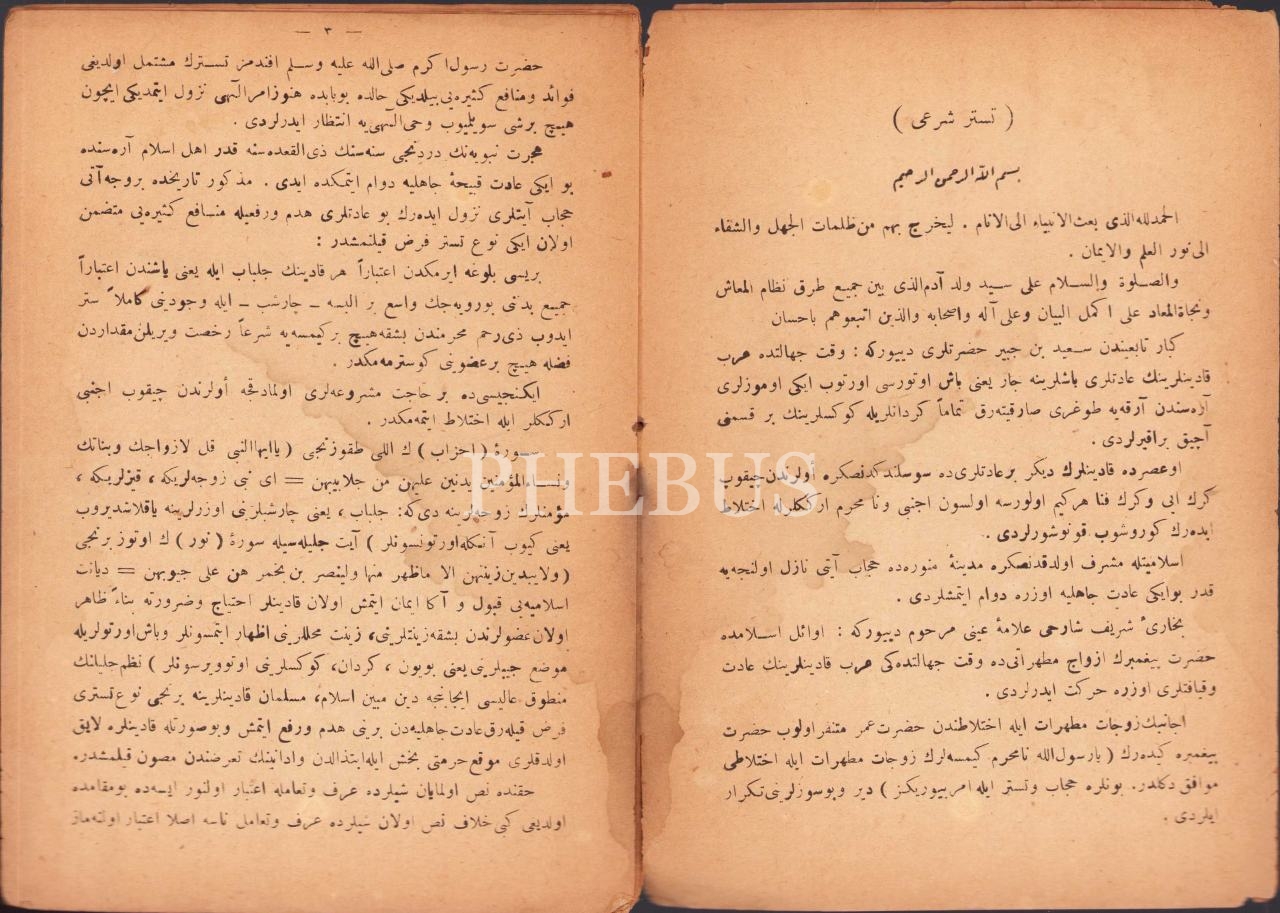 ( تستر شرعی )
بسم الله الرحمن الرحیم
الحمدلله‌الذی بعث‌الانبیاء الی‌الانام . لیخرج بهم من‌ظلمات الجهل والشقاء
الی‌نور العلم والایمان .
والصلوة والسلام علی سید ولد آدم‌الذی بین جمیع طرق نظام المعاش
ونجاة‌المعاد علی اکمل البیان وعلی آله واصحابه والذین اتبعوهم باحسان
کبار تابعیندن سعید بن جبیر حضرتلری دییورکه : وقت جهالتده عرب
قادینلرینك عادتلری باشلرینه جار یعنی باش اوتورسی اورتوب ایکی اوموزلری
آره‌سندن آرقه‌یه طوغری صارقیته‌رق تماماً کردانلریله کوکسلرینك بر قسمنی
آچیق براقیرلردی .
اوعصرده قادینلرك دیکر برعادتلری‌ده سوسلندکدنصکره أولرندن‌چیقوب
کرك ایی وکرك فنا هرکیم اولورسه اولسون اجنبی ونامحرم ارککلرله اختلاط
ایده‌رك کوروشوب قونوشورلردی .
اسلامیتله مشرف اولدقدنصکره مدینهٔ منوره‌ده حجاب آیتی نازل اولنجه‌یه
قدر بوایکی عادت جاهلیه اوزره دوام ایتمشلردی .
بخاریٔ شریف شارحی علامهٔ عینی مرحوم دییورکه : اوائل اسلامده
حضرت پیغمبرك ازواج مطهراتی‌ده وقت جهالتده‌کی عرب قادینلرینك عادت
وقیافتلری اوزره حرکت ایدرلردی .
اجانبك‌زوجات مطهرات ایله اختلاطندن حضرت‌عمر متنفراولوب حضرت
پیغمبره کیده‌رك ( یارسول‌الله نامحرم کیمسه‌لرك زوجات مطهرات ایله اختلاطی
موافق دکلدر. بونلره حجاب وتستر ایله امربیوریکز ) دیر وبوسوزلرینی‌تکرار
ایلردی .
— ۳ —
حضرت رسول‌اکرم صلی‌الله علیه وسلم افندمز تسترك مشتمل اولدیغی
فوائد ومنافع کثیره‌یی‌بیلدیکی حالده بوبابده هنوزامرالٓهی نزول ایتمدیکی‌ایچون
هیچ برشی سویلمیوب وحی‌الٓهی‌یه انتظار ایدرلردی .
هجرت نبویه‌نك دردنجی سنه‌سنك ذی‌القعده‌سنه قدر اهل اسلام آره‌سنده
بو ایکی عادت قبیحهٔ جاهلیه دوام ایتمکده ایدی . مذکور تاریخده بروجه‌آتی
حجاب آیتلری نزول ایده‌رك بو عادتلری هدم ورفعیله منافع کثیره‌یی متضمن
اولان ایکی نوع تستر فرض قیلنمشدر :
بریسی بلوغه ایرمکدن اعتباراً هر قادینك جلباب ایله یعنی باشندن اعتباراً
جمیع بدنی بورویه‌جك واسع بر البسه ــ چارشب ــ ایله وجودینی کاملاً ستر
ایدوب ذی‌رحم محرمندن بشقه‌هیچ برکیمسه‌یه شرعاً رخصت ویریلن‌مقداردن
فضله هیچ برعضوینی کوسترمه‌مکدر .
ایکنجیسی‌ده بر حاجت مشروعه‌لری اولمادقجه أولرندن چیقوب اجنبی
ارککلر ایله اختلاط ایتمه‌مکدر .
سورهٔ (احزاب ) ك اللی طقوزنجی ( یاایهاالنبی قل لازواجك وبناتك
ونساءالمؤمنین یدنین علیهن من جلابیبهن = ای نبی زوجه‌لریکه ، قیزلریکه ،
مؤمنلرك زوجه‌لرینه دی‌که: جلباب ، یعنی چارشبلرینی اوزرلرینه یاقلاشدیروب
یعنی کیوب آنکله‌اورتونسونلر ) آیت جلیله‌سیله سورهٔ ( نور ) ك اوتوز برنجی
( ولایبدین‌زینتهن الا ماظهر منها ولیضربن بخمرهن علی جیوبهن = دیانت
اسلامیه‌یی قبول و آکا ایمان ایتمش اولان قادینلر احتیاج وضرورته بناءً ظاهر
اولان‌عضولرندن بشقه‌زینتلرینی، زینت محللرینی اظهار ایتمسونلر وباش‌اورتولریله
موضع جیبلرینی یعنی بویون ، کردان، کوکسلرینی اوتوویرسونلر ) نظم‌جلیلنك
منطوق عالیسی ایجابنجه دین مبین اسلام، مسلمان قادینلرینه برنجی نوع‌تستری
فرض قیله‌رق‌عادت‌جاهلیه‌دن برینی هدم ورفع ایتمش وبوصورتله قادینلره لایق
اولدقلری موقع حرمتی بخش ایله‌ابتذالدن وادانینك تعرضندن مصون قیلمشدر.
حقنده نص اولمایان شیلرده عرف وتعامله اعتبار اولنور ایسه‌ده بومقامده
اولدیغی کبی خلاف نص اولان شیلرده عرف وتعامل ناسه اصلا اعتبار اولنه‌ماز
PHEBUS